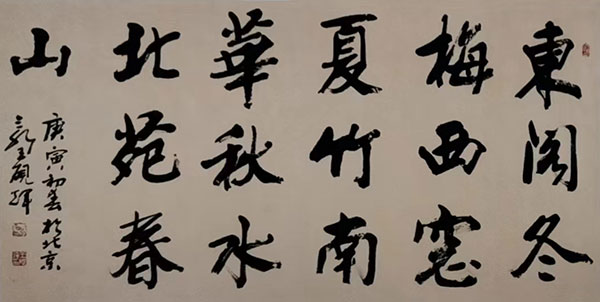 東閣冬
梅西窓
夏竹南
華秋水
北苑春
山
庚寅初春於北京